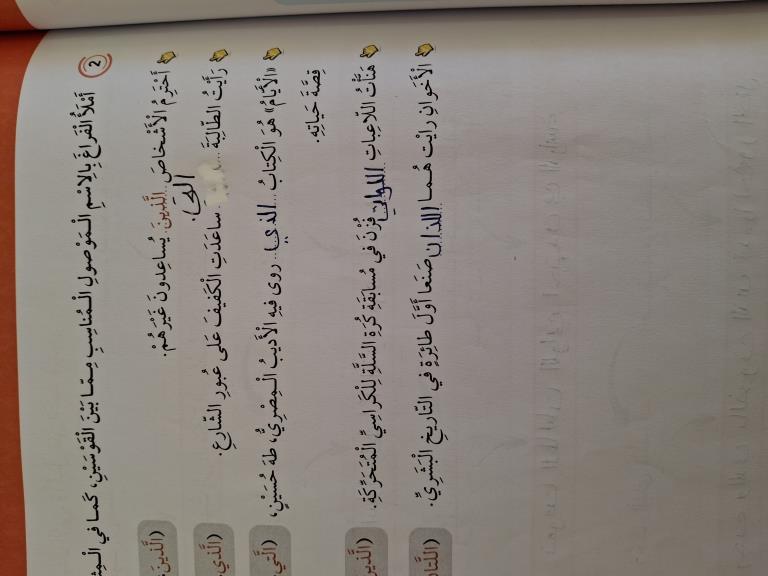 2 أَمْلَأُ الْفَراغَ بِالِاسْمِ الْمَوْصولِ الْمُناسِبِ مِمّا بَيْنَ الْقَوْسَيْنِ، كَما في
أَحْتَرِمُ الْأَشْخاصَ ..الَّذينَ.. يُساعِدونَ غَيْرَهُمْ. (الَّذينَ
رَأَيْتُ الطّالِبَةَ ... التي ساعَدَتِ الْكَفيفَ عَلى عُبورِ الشّارِعِ. (الَّذي
«الْأَيّامُ» هُوَ الْكِتابُ ...الذي... رَوى فيهِ الْأَديبُ الْمِصْرِيُّ، طٰهَ حُسَيْنٍ، (الَّتي
قِصَّةَ حَياتِهِ.
هَنَّأْتُ اللّاعِباتِ اللواتي فُزْنَ في مُسابَقَةِ كُرَةِ السَّلَّةِ لِلْكَراسِيِّ الْمُتَحَرِّكَةِ.
الْأَخَوانِ رايْت هُما اللذان صَنَعا أَوَّلَ طائِرَةٍ في التّاريخِ الْبَشَرِيِّ.